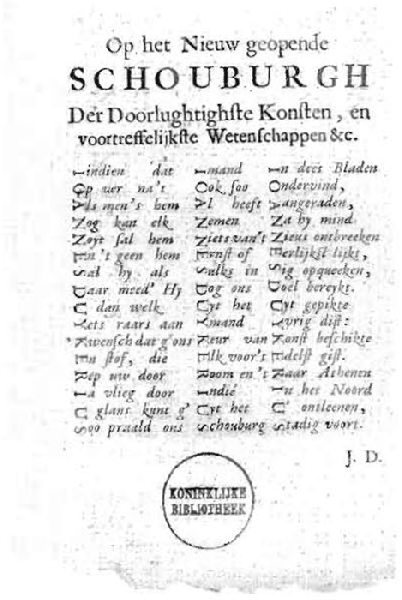 Op het Nieuw geopende
SCHOUBURGH
Der Doorlughtighste Konsten, en
voortreffelijkste Wetenschappen &c.
Indien 'dat Imand In dees Bladen
Op uer na't Ook soo Ondervind,
Als men's hem Al heeft Aangeraden,
Nog kan elk Nemen Na by mind
Noyt sal hem Niets van't Nieus ontbreeken
En 't geen hem Ernst of Eerlijkst lijkt,
Sal hy als Sulks in Sig opqueeken,
Daar meed' Hy Dog ons Doel bereykt.
U dan welk Uyt het Uyt gepikte
Yets raars aan Ymand Yvrig dist:
'Kwensch dat g'ons Keur van Konst beschikte
En stof, die Elk voor't Edelst gist.
Rep uw door Room en 't Raar Athenen
Ia vlieg door Indië In het Noord
U glans kunt g' Uyt het U ontleenen,
Soo praald ons Schouburg Stadig voort.
J. D.
KONINKLIJKE
BIBLIOTHEEK